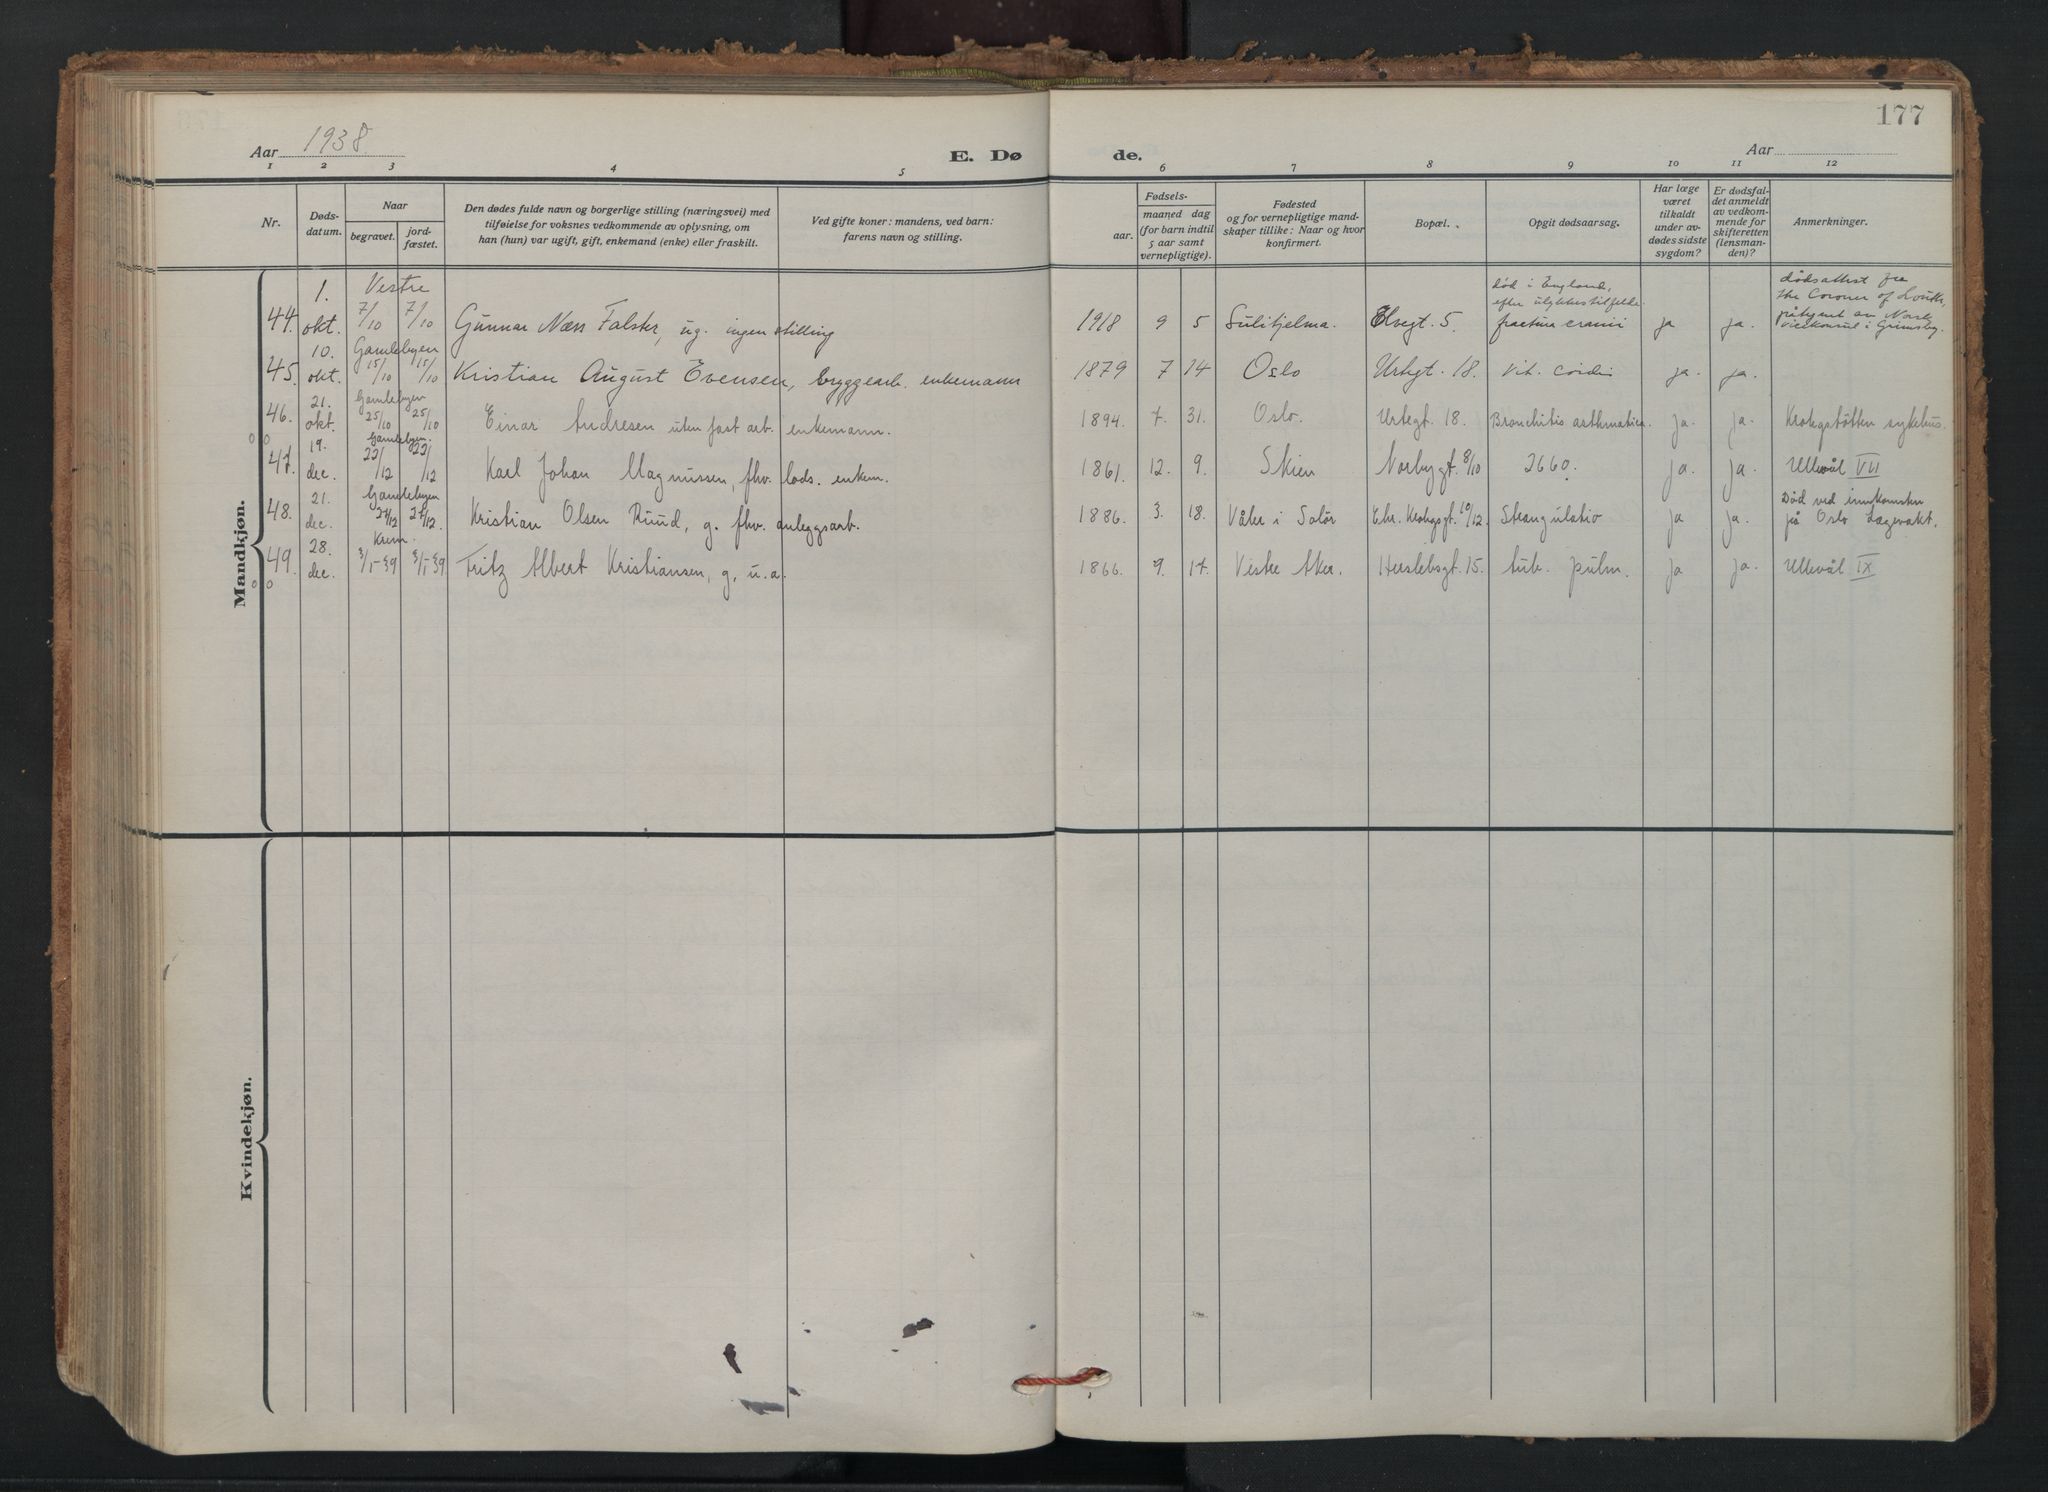 177
Aar 1938.
E. Døde.
Aar
1 2 3 4 5 6 7 8 9 10 11 12
Nr.
Døds-
datum.
Naar
begravet.
jord-
fæstet.
Den dødes fulde navn og borgerlige stilling (næringsvei) med
tilføielse for voksnes vedkommende av oplysning, om
han (hun) var ugift, gift, enkemand (enke) eller fraskilt.
Ved gifte koner: mandens, ved barn:
farens navn og stilling.
Fødsels-
aar.
maaned dag
(for barn indtil
5 aar samt
vernepligtige).
Fødested
og for vernepligtige mand-
skaper tillike: Naar og hvor
konfirmert.
Bopæl.
Opgit dødsaarsag.
Har læge
været
tilkaldt
under av-
dødes sidste
sygdom?
Er dødsfal-
det anmeldt
av vedkom-
mende for
skifteretten
(lensman-
den)?
Anmerkninger.
Mandkjøn.
1. Vestre død i England, dødsattest fra
efter ulykkestilfelde the Coroner of Louth
44. okt. 7/10 7/10 Gunnar Næss Falster, ug. ingen stilling 1918 9 5 Sulitjelma. Elvegt. 5. fractura cranii ja ja. påtegnet av Norsk
visekonsul i Grimsby.
10. Gamlebyen
45. okt. 15/10 15/10 Kristian August Evensen, bryggearb. enkemann 1879 7 14 Oslo Urtegt. 18. Vit. cordis ja. ja.
21. Gamlebyen
46. okt 25/10 25/10 Einar Andresen uten fast arb. enkemann. 1894. 7. 31. Oslo. Urtegt. 18. Bronchitis asthmatica. ja. ja. Krohgstøtten sykehus.
19. Gamlebyen.
47. dec 22/12 22/12 Karl Johan Magnussen, fhv. lods. enkem. 1861. 12. 9. Skien Norbygt. 8/10 2660. ja. ja. Ullevål VII
21. Gamlebyen Død ved innkomsten
48. dec. 27/12 27/12. Kristian Olsen Ruud, g. fhv. anleggsarb. 1886. 3. 18. Våler i Solör Chr. Krohgsgt. 10/12. Strangulatio ja ja. på Oslo Lægevakt.
28. Krem.
49. dec. 3/1-39 3/1-39. Fritz Albert Kristiansen, g. u. a. 1866. 9. 17. Vestre Aker. Herslebsgt. 15. tub. pulm. ja ja. Ullevål IX
Kvindekjøn.